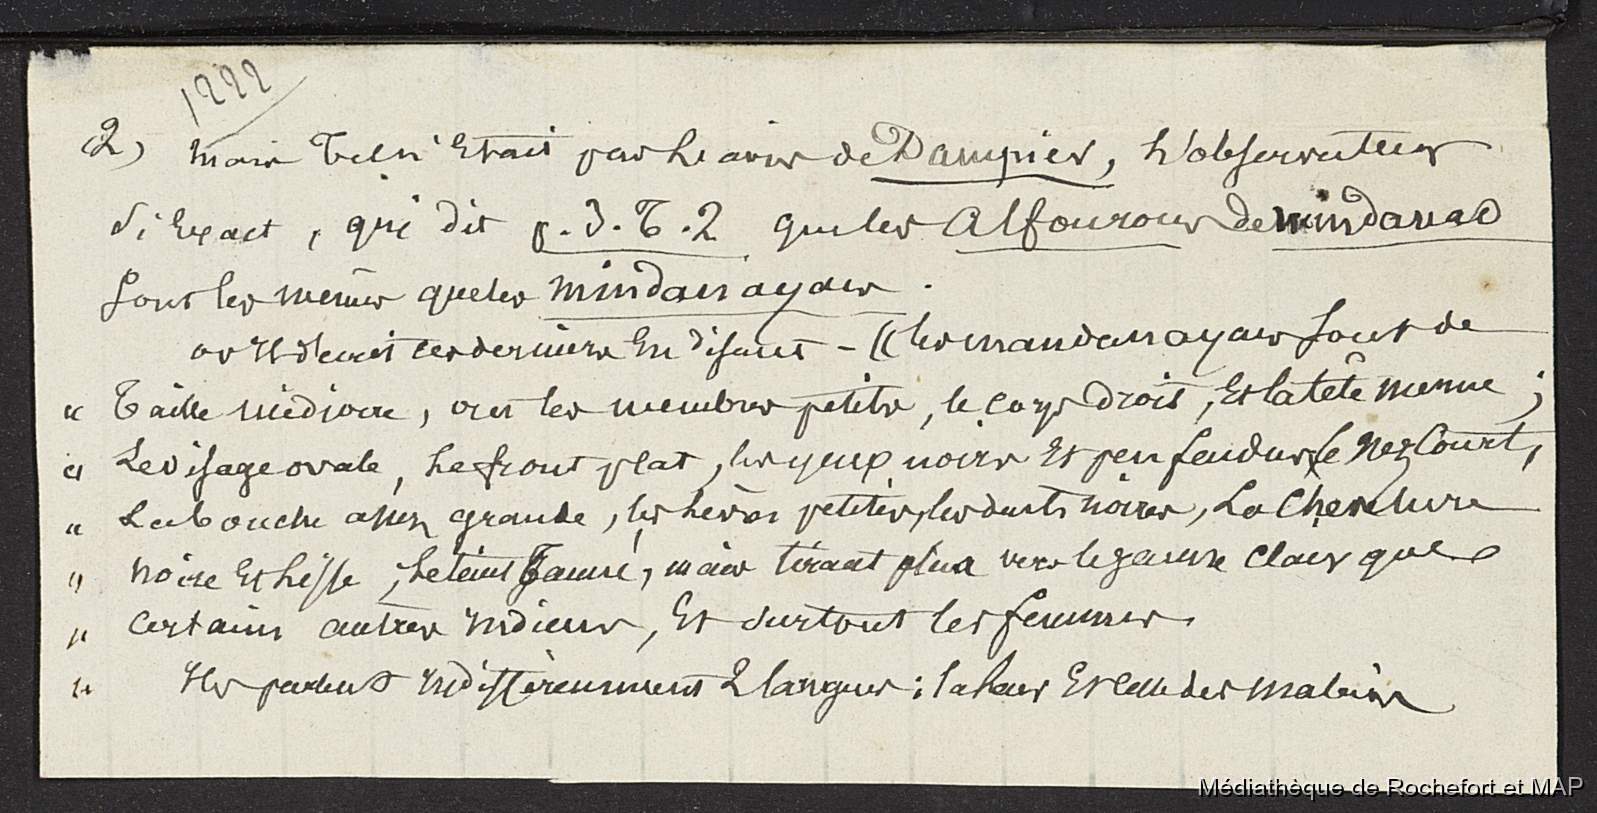 1222
2) mais tel n'Etait pas L'avis de Dampier, L'observateur
si Exact, qui dit p. 3. T. 2 que les Alfourous de mindanao
sont les mêmes que les Mindanayais.
or il décrit ces derniers En disant - (( les mandanayais sont de
" Taille médiocre, ont les membres petits, le corps droit, Et la tête menue ;
" Le visage ovale, Le front plat, les yeux noirs Et peu fendus, le Nez Court,
" La bouche assez grande, les lèvres petites, les dents noires, La Chevelure
" noire Et lisse, Le teint Tanné, mais tirant plus vers le jaune clair que
" certains autres indiens, Et surtout les femmes.
" Ils parlent indifféremment 2 langues : la leur Et celle des malais
Médiathèque de Rochefort et MAP